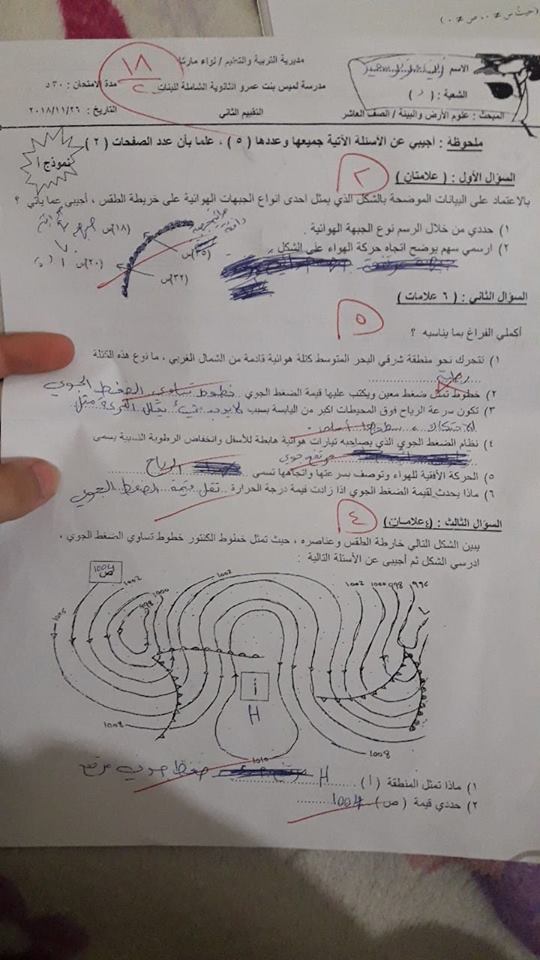 (حيث س ≠ ٠، ص ≠ ٠)
مديرية التربية والتعليم / لواء ماركا
الاسم
١٨
مدرسة لميس بنت عمرو الثانوية الشاملة للبنات
مدة الامتحان : ٣٠ د
الشعبة : ( )
التقييم الثاني
التاريخ : ٢٠١٨/١١/٢٦
المبحث : علوم الأرض والبيئة / الصف العاشر
ملحوظة : اجيبي عن الأسئلة الآتية جميعها وعددها ( ٥ ) ، علما بأن عدد الصفحات ( ٢ )
نموذج أ
السؤال الأول : ( علامتان )
٢
بالاعتماد على البيانات الموضحة بالشكل الذي يمثل احدى انواع الجبهات الهوائية على خريطة الطقس ، أجيبي عما يأتي ؟
١) حددي من خلال الرسم نوع الجبهة الهوائية .
(١٨)س
٢) ارسمي سهم يوضح اتجاه حركة الهواء على الشكل
(٣٥)س
(٢٠)س
(٣٢)س
السؤال الثاني : ( ٦ علامات )
٥
أكملي الفراغ بما يناسبه ؟
١) تتحرك نحو منطقة شرقي البحر المتوسط كتلة هوائية قادمة من الشمال الغربي ، ما نوع هذه الكتلة
رطبة
٢) خطوط تمثل ضغط معين ويكتب عليها قيمة الضغط الجوي خطوط تساوي الضغط الجوي
٣) تكون سرعة الرياح فوق المحيطات اكبر من اليابسة بسبب
الاحتكاك ، سطحها أملس
٤) نظام الضغط الجوي الذي يصاحبه تيارات هوائية هابطة للأسفل وانخفاض الرطوبة النسبية يسمى
مرتفع جوي
٥) الحركة الأفقية للهواء وتوصف بسرعتها واتجاهها تسمى الرياح
٦) ماذا يحدث لقيمة الضغط الجوي اذا زادت قيمة درجة الحرارة تقل قيمة الضغط الجوي
السؤال الثالث : ( ٤ علامات )
٤
يبين الشكل التالي خارطة الطقس وعناصره ، حيث تمثل خطوط الكنتور خطوط تساوي الضغط الجوي ،
ادرسي الشكل ثم أجيبي عن الأسئلة التالية :
1004
ص
1002
1000
998
1002
1002
1000
998
996
1006
أ
H
1008
1008
1010
١) ماذا تمثل المنطقة ( أ ) H ضغط جوي مرتفع
٢) حددي قيمة ( ص ) 1004